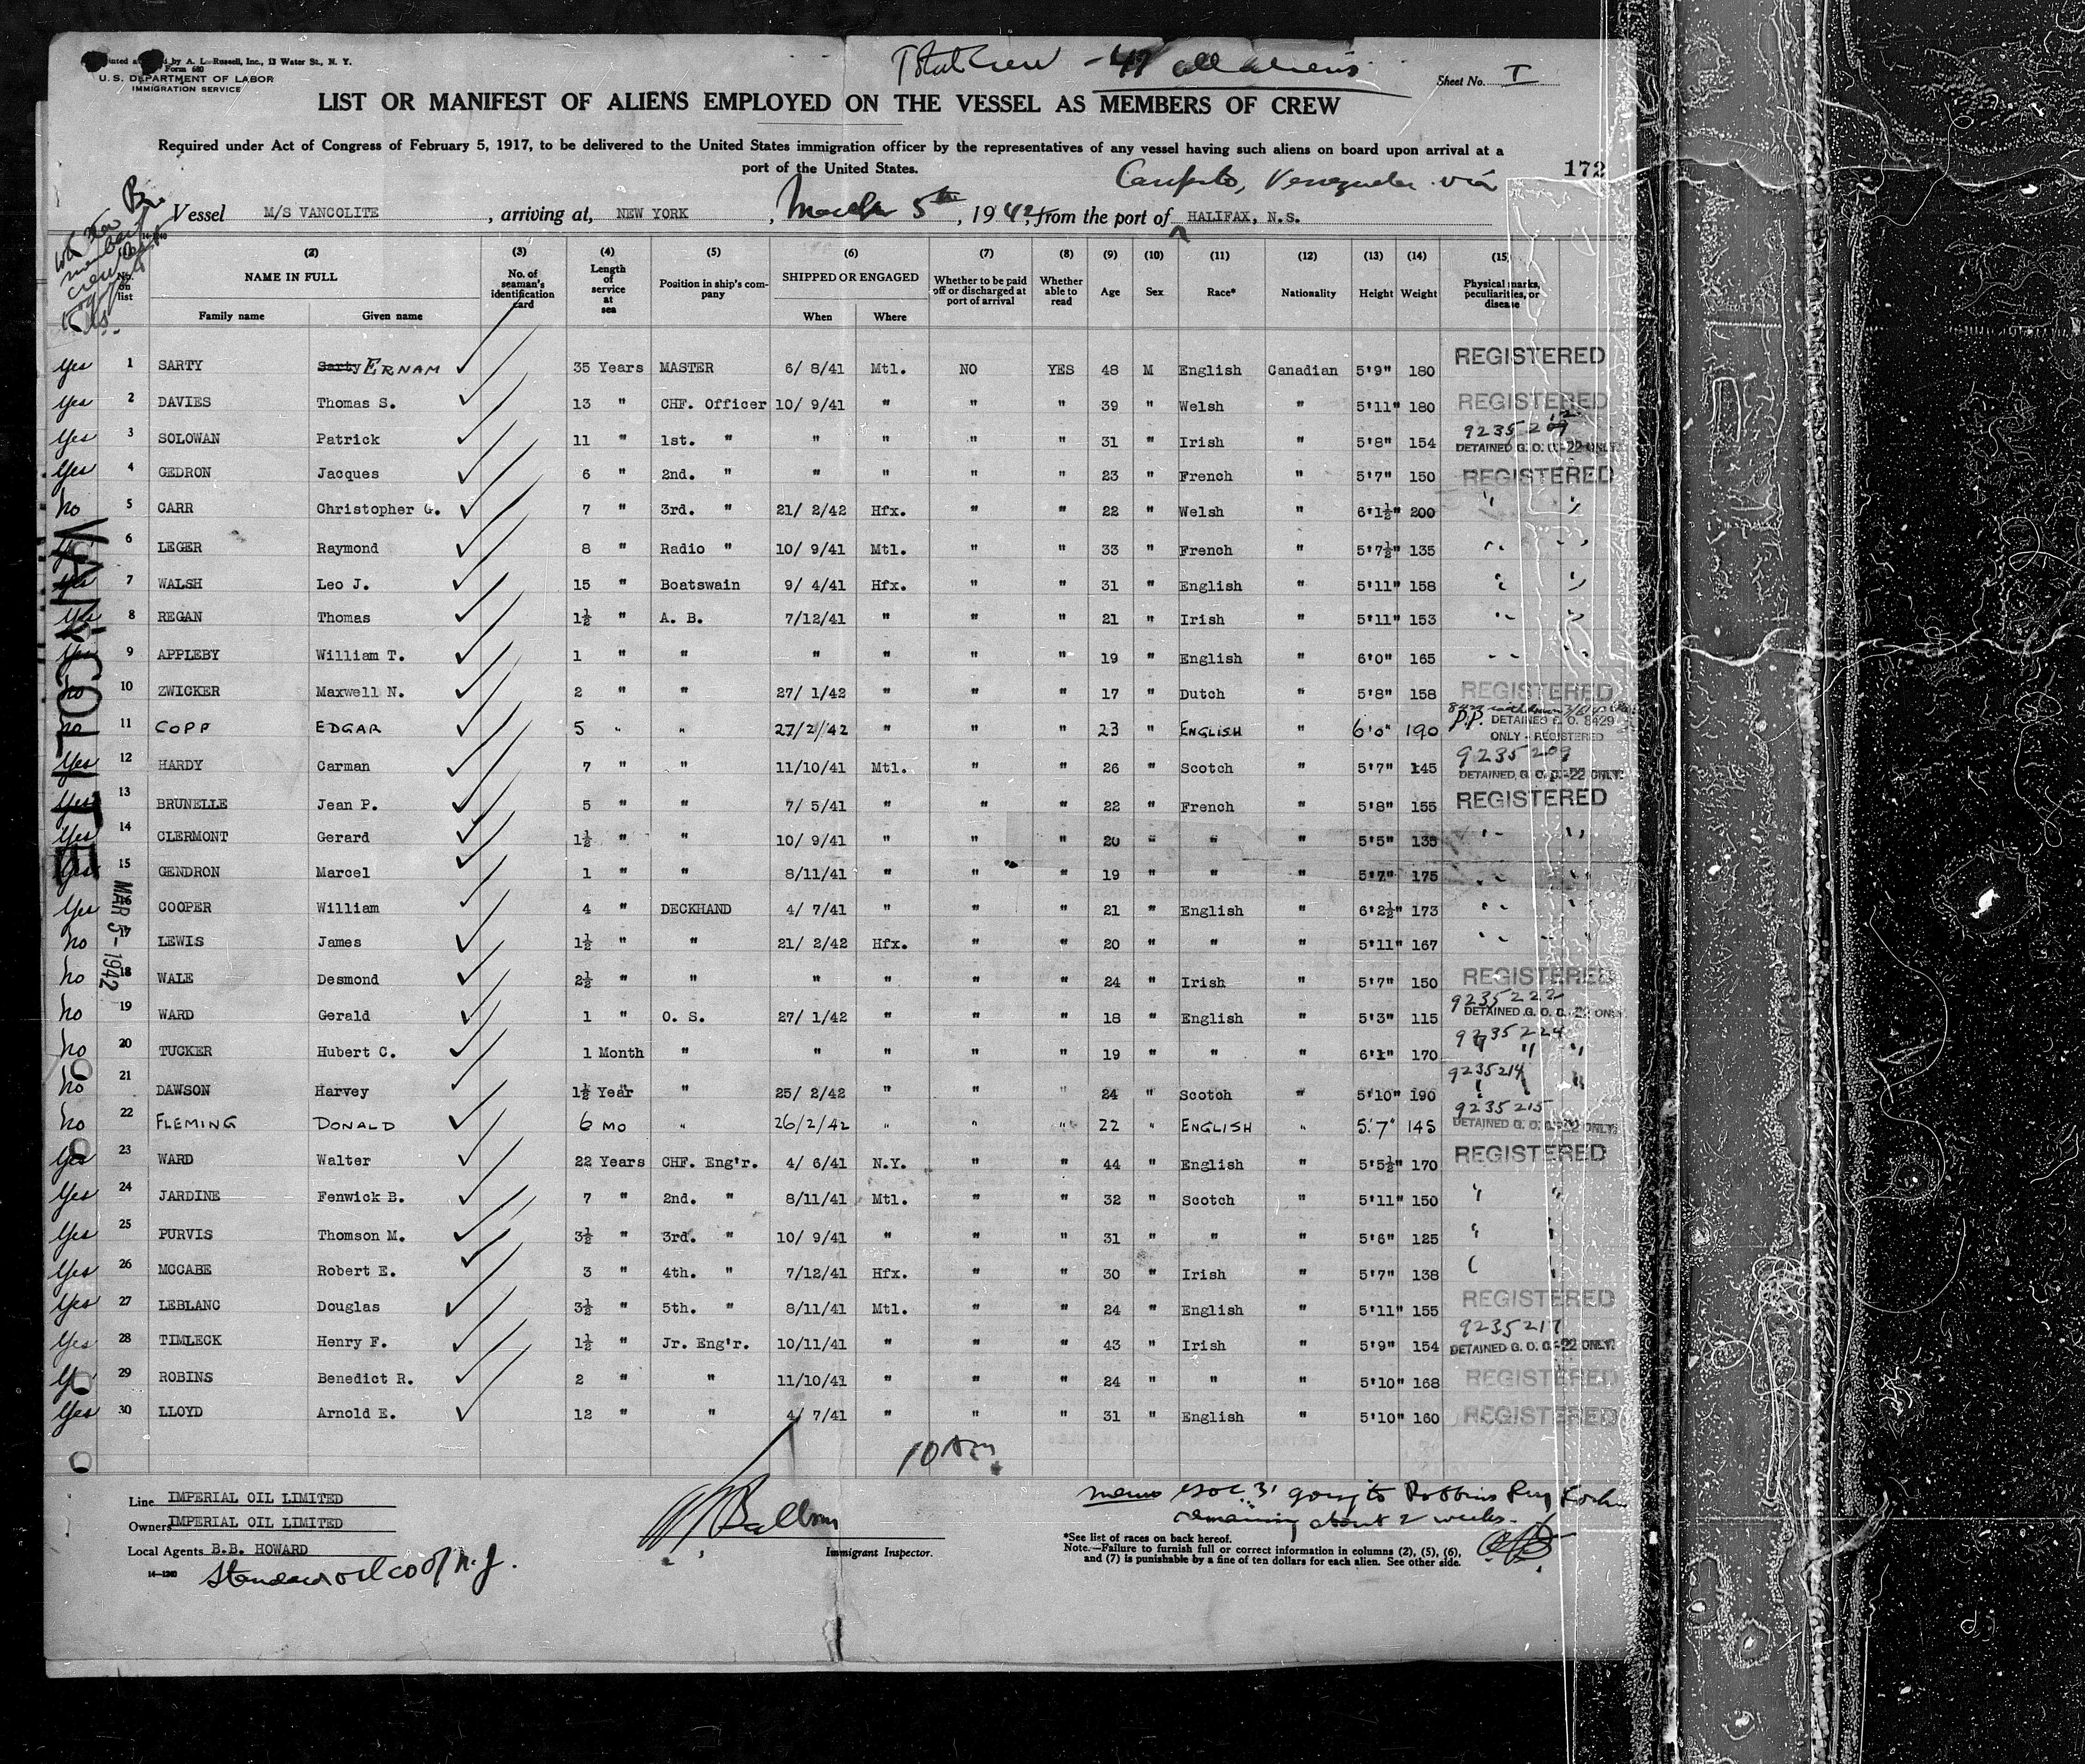 by A. L. Russell, Inc., 13 Water St., N. Y.
Form 680
U. S. DEPARTMENT OF LABOR
IMMIGRATION SERVICE
Total Crew - 47 all aliens
Sheet No. I
LIST OR MANIFEST OF ALIENS EMPLOYED ON THE VESSEL AS MEMBERS OF CREW
Required under Act of Congress of February 5, 1917, to be delivered to the United States immigration officer by the representatives of any vessel having such aliens on board upon arrival at a
port of the United States.
172
Caripito, Venezuela via
Br. Vessel M/S VANCOLITE, arriving at, NEW YORK, March 5th, 1942, from the port of HALIFAX, N.S.
14-1240
(2) (3) (4) (5) (6) (7) (8) (9) (10) (11) (12) (13) (14) (15)
No. on list NAME IN FULL Family name Given name No. of seaman's identification card Length of service at sea Position in ship's company SHIPPED OR ENGAGED When Where Whether to be paid off or discharged at port of arrival Whether able to read Age Sex Race* Nationality Height Weight Physical marks, peculiarities, or disease
Yes 1 SARTY Sarty ERNAM 35 Years MASTER 6/ 8/41 Mtl. NO YES 48 M English Canadian 5'9" 180 REGISTERED
Yes 2 DAVIES Thomas S. 13 " CHF. Officer 10/ 9/41 " " " 39 " Welsh " 5'11" 180 REGISTERED
Yes 3 SOLOWAN Patrick 11 " 1st. " " " " " 31 " Irish " 5'8" 154 DETAINED G. O. C.-22 ONLY.
Yes 4 GEDRON Jacques 6 " 2nd. " " " " " 23 " French " 5'7" 150 REGISTERED
No 5 CARR Christopher G. 7 " 3rd. " 21/ 2/42 Hfx. " " 22 " Welsh " 6'1½" 200 " "
6 LEGER Raymond 8 " Radio " 10/ 9/41 Mtl. " " 33 " French " 5'7½" 135 " "
Yes 7 WALSH Leo J. 15 " Boatswain 9/ 4/41 Hfx. " " 31 " English " 5'11" 158 " "
Yes 8 REGAN Thomas 1½ " A. B. 7/12/41 " " " 21 " Irish " 5'11" 153 " "
Yes 9 APPLEBY William T. 1 " " " " " " 19 " English " 6'0" 165 " "
No 10 ZWICKER Maxwell N. 2 " " 27/ 1/42 " " " 17 " Dutch " 5'8" 158 REGISTERED
No 11 COPP EDGAR 5 " " 27/2/42 " " " 23 " ENGLISH " 6'0" 190 P.P. DETAINED G. O. 8429 ONLY - REGISTERED
Yes 12 HARDY Carman 7 " " 11/10/41 Mtl. " " 26 " Scotch " 5'7" 145 9235209 DETAINED, G. O. C.-22 ONLY.
Yes 13 BRUNELLE Jean P. 5 " " 7/ 5/41 " " " 22 " French " 5'8" 155 REGISTERED
Yes 14 CLERMONT Gerard 1½ " " 10/ 9/41 " " " 20 " " " 5'5" 135 " "
Yes 15 GENDRON Marcel 1 " " 8/11/41 " " " 19 " " " 5'7" 175 " "
Yes 16 COOPER William 4 " DECKHAND 4/ 7/41 " " " 21 " English " 6'2½" 173 " "
No 17 LEWIS James 1½ " " 21/ 2/42 Hfx. " " 20 " " " 5'11" 167 " "
No 18 WALE Desmond 2½ " " " " " " 24 " Irish " 5'7" 150 REGISTERED
No 19 WARD Gerald 1 " O. S. 27/ 1/42 " " " 18 " English " 5'3" 115 9235222 DETAINED G. O. C.-22 ONLY.
No 20 TUCKER Hubert C. 1 Month " " " " " 19 " " " 6'1" 170 9235224 " " "
No 21 DAWSON Harvey 1½ Year " 25/ 2/42 " " " 24 " Scotch " 5'10" 190 9235214 " "
No 22 FLEMING DONALD 6 MO " 26/2/42 " " " 22 " ENGLISH " 5'7" 145 9235215 DETAINED G. O. C.-22 ONLY.
Yes 23 WARD Walter 22 Years CHF. Eng'r. 4/ 6/41 N.Y. " " 44 " English " 5'5½" 170 REGISTERED
Yes 24 JARDINE Fenwick B. 7 " 2nd. " 8/11/41 Mtl. " " 32 " Scotch " 5'11" 150 " "
Yes 25 PURVIS Thomson M. 3½ " 3rd. " 10/ 9/41 " " " 31 " " " 5'6" 125 " "
Yes 26 MCCABE Robert E. 3 " 4th. " 7/12/41 Hfx. " " 30 " Irish " 5'7" 138 " "
Yes 27 LEBLANC Douglas 3½ " 5th. " 8/11/41 Mtl. " " 24 " English " 5'11" 155 REGISTERED
Yes 28 TIMLECK Henry F. 1½ " Jr. Eng'r. 10/11/41 " " " 43 " Irish " 5'9" 154 9235217 DETAINED G. O. C.-22 ONLY.
29 ROBINS Benedict R. 2 " " 11/10/41 " " " 24 " " " 5'10" 168 REGISTERED
Yes 30 LLOYD Arnold E. 12 " " 4/ 7/41 " " " 31 " English " 5'10" 160 REGISTERED
VANCOLITE
MAR 5-1942
10 Am
Line IMPERIAL OIL LIMITED
Owners IMPERIAL OIL LIMITED
Local Agents B.B. HOWARD
14-1240
Standard oil co of N.J.
Immigrant Inspector.
going to Robbins
remaining about 2 weeks.
*See list of races on back hereof.
Note.—Failure to furnish full or correct information in columns (2), (5), (6),
and (7) is punishable by a fine of ten dollars for each alien. See other side.